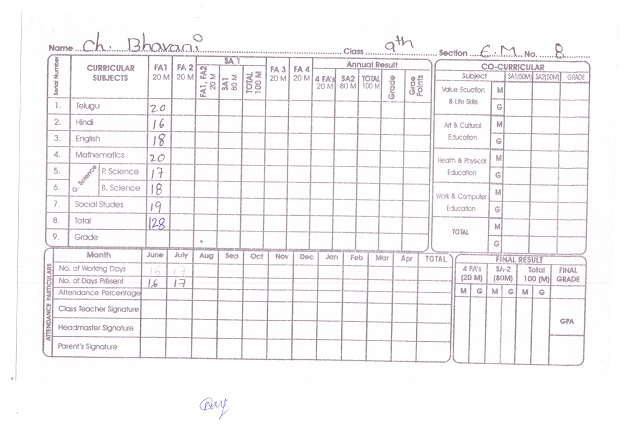 Name Ch. Bhavani Class 9th Section E.M. No. 8
Serial Number CURRICULAR SUBJECTS FA1 20 M FA 2 20 M SA 1 FA1, FA2 20 M SA1 80 M TOTAL 100 M FA 3 20 M FA 4 20 M Annual Result 4 FA's 20 M SA2 80 M TOTAL 100 M Grade Grae Points
1. Telugu 20
2. Hindi 16
3. English 18
4. Mathematics 20
G. Science
5. P. Science 17
6. B. Science 18
7. Social Studes 19
8. Total 128
9. Grade
CO-CURRICULAR
Subject SA1(50M) SA2(50M) GRADE
Value Ecuation & Life Skills M G
Art & Cultural Education M G
Health & Physical Education M G
Work & Computer Education M G
TOTAL M G
ATTENDANCE PARTICULARS
Month June July Aug Sep Oct Nov Dec Jan Feb Mar Apr TOTAL
No. of Working Days 16 17
No. of Days Present 16 17
Attendance Percentage
Class Teacher Signature
Headmaster Signature
Parent's Signature
FINAL RESULT
4 FA's (20 M) SA-2 (80M) Total 100 (M) FINAL GRADE
M G M G M G
GPA